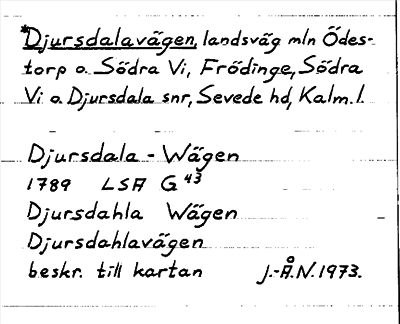 *Djursdalavägen, landsväg mln Ödes-
torp o. Södra Vi, Frödinge, Södra
Vi o. Djursdala snr, Sevede hd, Kalm. l.
Djursdala - Wägen
1789 LSA G 43
Djursdahla Wägen
Djursdahlavägen
beskr. till kartan J.-Å.N. 1973.